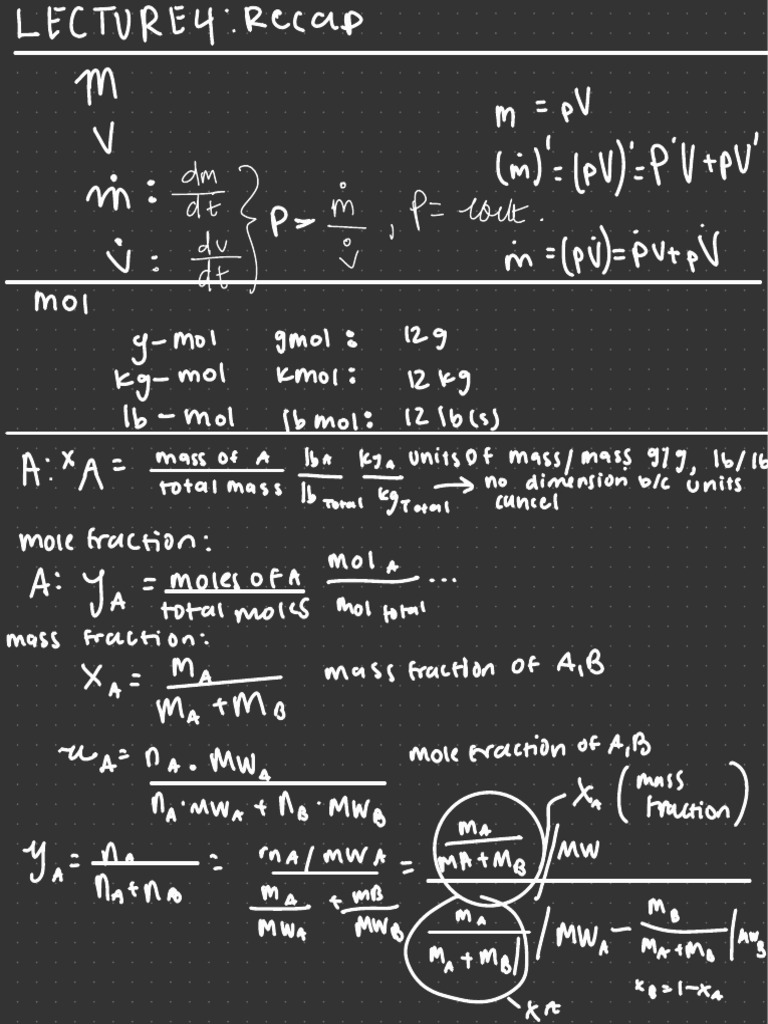 LECTURE 4: Recap
m
V
ṁ: dm/dt
V̇: dv/dt
} ρ = ṁ/V̇, ρ = const.
m = ρV
(ṁ)' = (ρV)' = ρ'V + ρV'
ṁ = (ρV̇) = ρ̇V + ρV̇
mol
g-mol gmol: 12 g
kg-mol kmol: 12 kg
lb-mol lbmol: 12 lb(s)
A: xA = mass of A / total mass lbA / lb Total kgA / kg Total units of mass/mass g/g, lb/lb
→ no dimension b/c units
cancel
mole fraction:
A: yA = moles of A / total moles mol A / mol total ...
mass fraction:
xA = mA / (mA + mB) mass fraction of A,B
xA = nA · MWA / (nA · MWA + nB · MWB) mole fraction of A,B
xA (mass fraction)
yA = nA / (nA + nB) = (mA/MWA) / (mA/MWA + mB/MWB) = (mA / (mA + mB) / MW) / (mA / (mA + mB) / MWA - mB / (mA + mB) / MWB)
xB = 1 - xA
xA